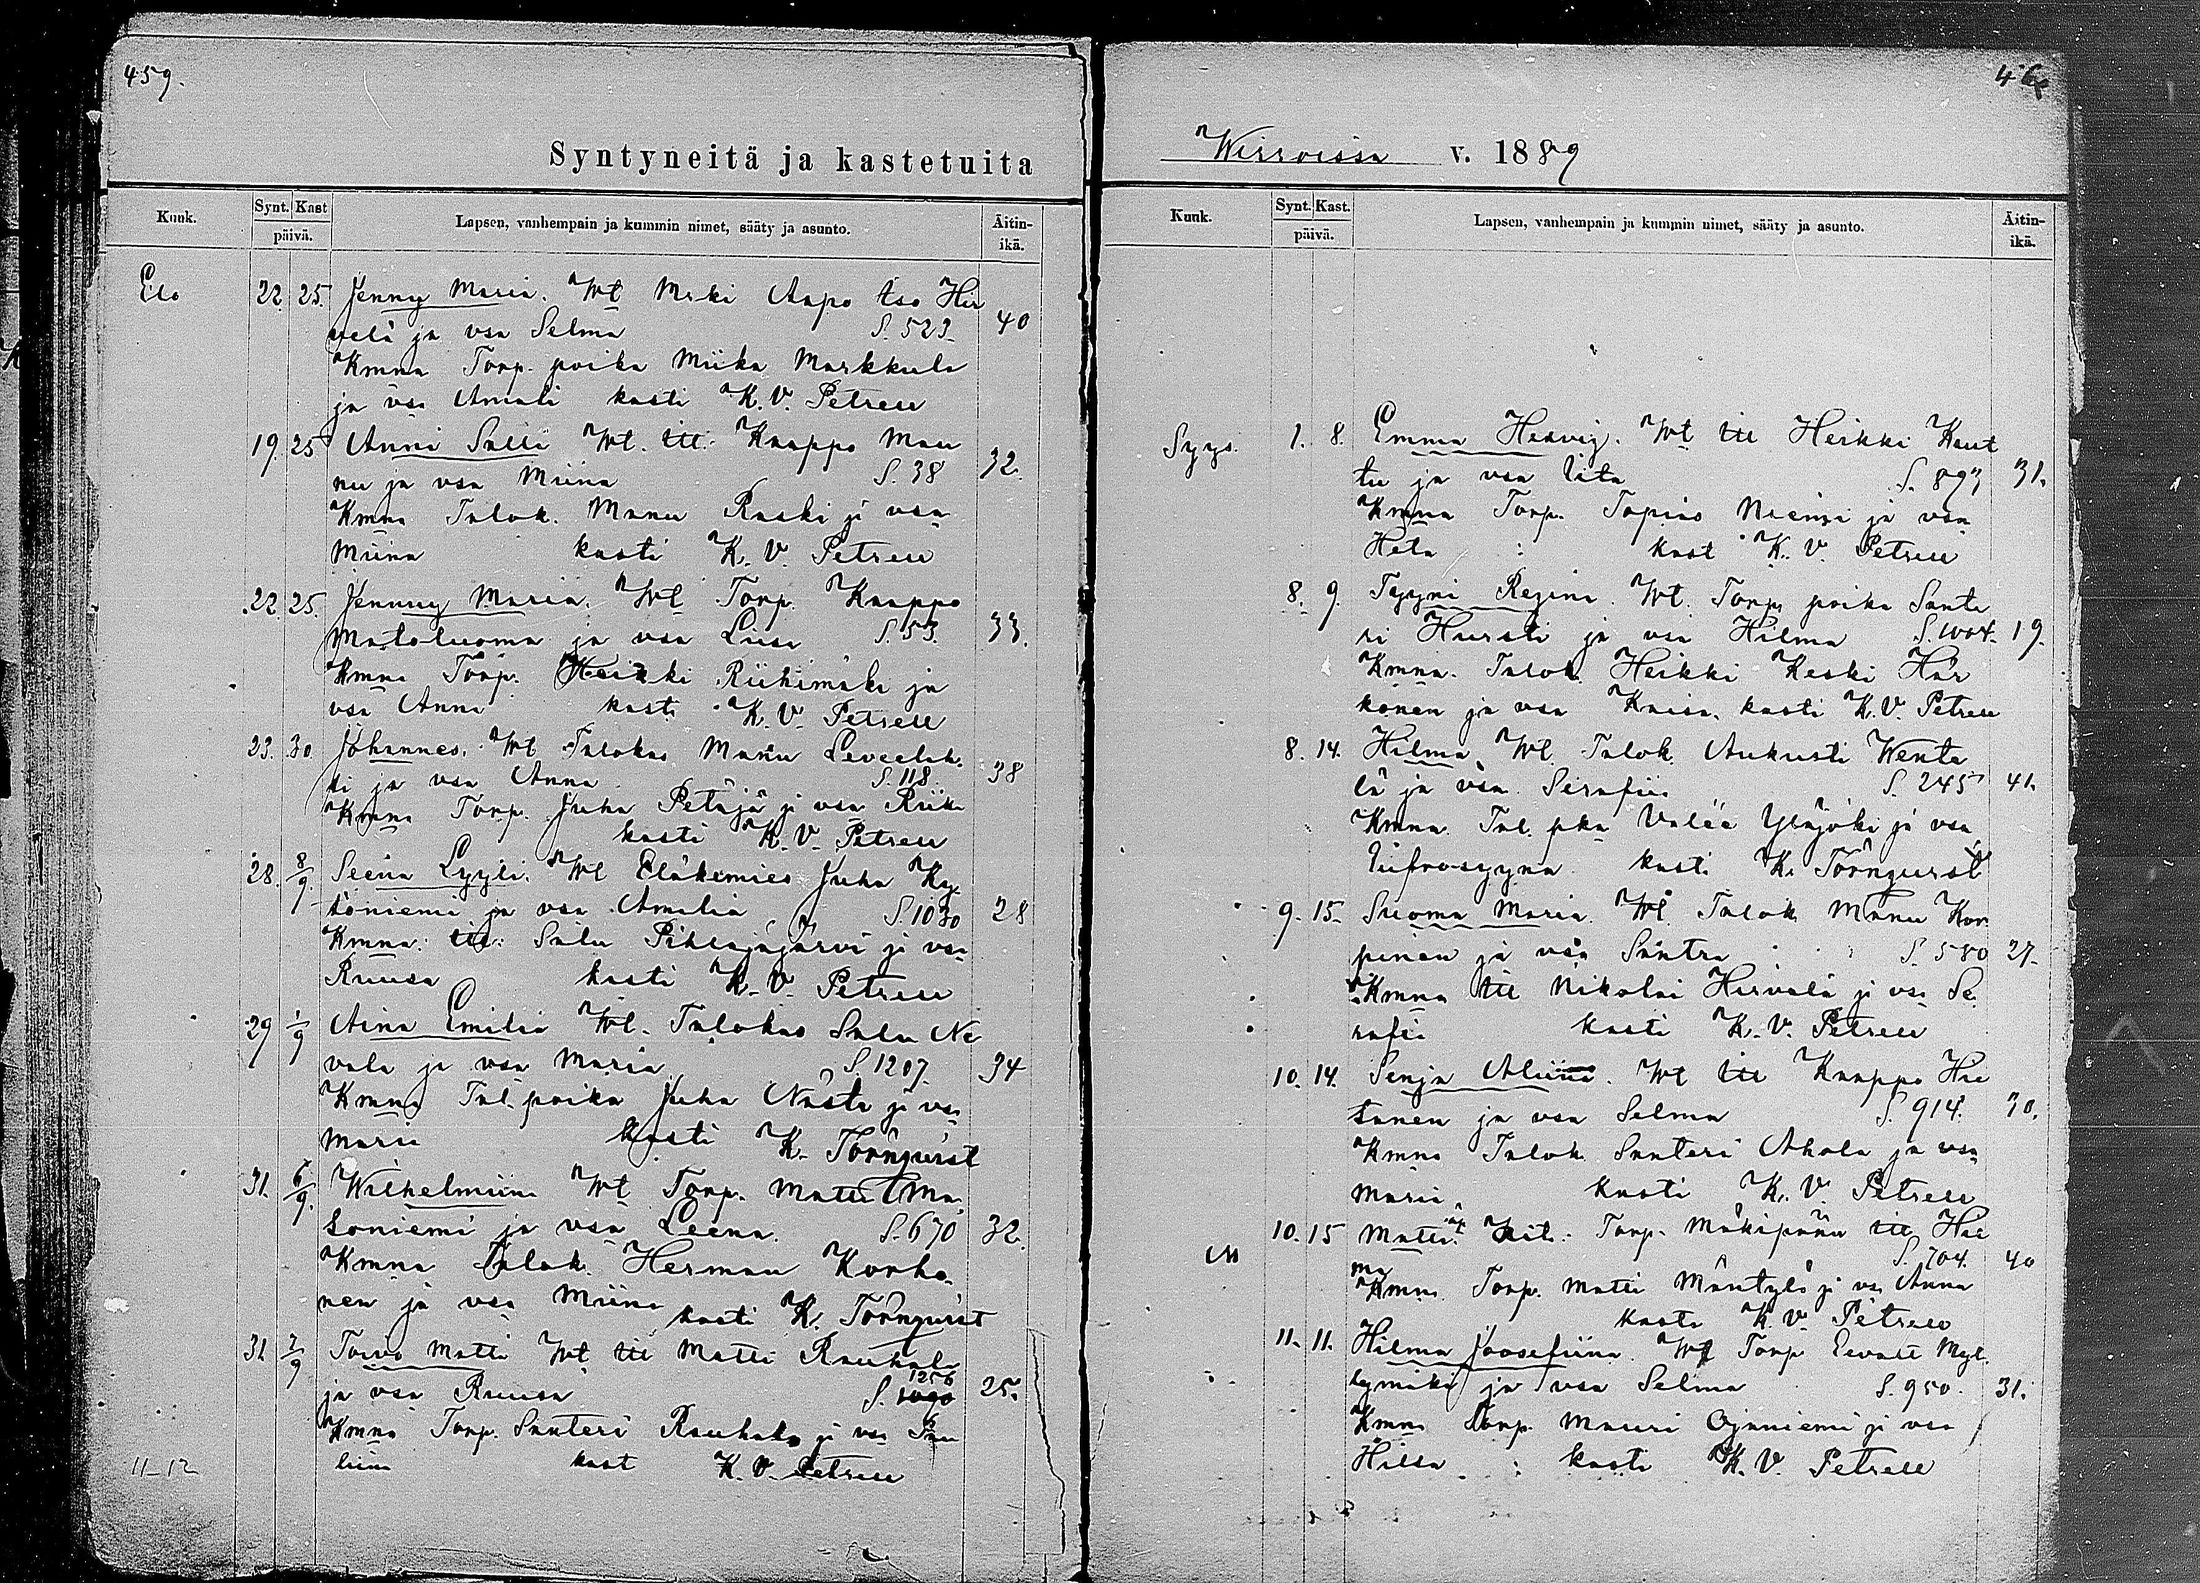 459.
Syntyneitä ja kastetuita
Kuuk.
Synt. Kast
päivä.
Lapsen, vanhempain ja kummin nimet, sääty ja asunto.
Äitin-
ikä.
Elo 22. 25. Jenny Maria. Wt Mäki Aapo Iso Hir
velä ja vsa Selma S. 523. 40
Kmna Torp. poika Miika Markkula
ja vsa Amali kasti K. V. Petrell
19. 25 Anni Salli Wt. itl. Kaappo Mau
nu ja vsa Miina S. 38 32.
Kmna Talok. Manu Raski ja vsa
Miina kasti K. V. Petrell
22. 25. Jenny Maria. Wt Torp. Kaappo
Mataluoma ja vsa Liisa S. 53. 33.
Kmna Torp. Heikki Riihimäki ja
vsa Anna kasti K. V. Petrell
23. 30. Johannes. Wt Talokas Manu Leveelah
ti ja vsa Anna S. 118. 38
Kmna Torp. Juha Petäjä ja vsa Riika
kasti K. V. Petrell
28. 8/9. Seena Lyyli. Wt Eläkemies Juha Ky
töniemi ja vsa Amalia S. 1030 28
Kmna: itl: Salu Pihlajajärvi ja vsa
Ruusa kasti K. V. Petrell
29 1/9 Aina Emilia Wt. Talokas Salu Ne
vala ja vsa Maria S. 1207. 34
Kmna Tal. poika Juha Nästi ja vsa
Maria kasti K. Törnqvist
31. 6/9. Wilhelmiina Wt Torp. Matti Ma
toniemi ja vsa Leena. S. 670 32.
Kmna Talok. Herman Korho
nen ja vsa Miina kasti K. Törnqvist
31 2/9 Toivo Matti Wt itl Matti Rauhala
1256
ja vsa Ruusa S. 1090 25.
Kmna Torp. Santeri Rauhala ja vsa Pau
liina kast K. V. Petrell
11-12
Wirroissa v. 1889
Kuuk.
Synt. Kast.
päivä.
Lapsen, vanhempain ja kummin nimet, sääty ja asunto.
Äitin-
ikä.
Syys. 1. 8. Emma Hedvig. Wt itl Heikki Kaut
tu ja vsa Iita S. 893 31.
Kmna Torp. Topias Niemi ja vsa
Heta kast K. V. Petrell
8. 9. Tyyni Regina. Wt. Torp. poika Sante
ri Hursti ja vsa Hilma S. 1004. 19.
Kmna. Talok. Heikki Keski Här
könen ja vsa Kaisa. kasti K. V. Petrell
8. 14. Hilma Wt. Talok. Aukusti Wente
lä ja vsa Serafii S. 245 41.
Kmna Tal. pka Valee Yläjoki ja vsa
Eufrosyyna kasti K. Törnqvist
9. 15. Suoma Maria. Wt. Talok. Manu Kor
pinen ja vsa Santra S. 580 27.
Kmna itl Nikolai Hirvelä ja vsa Se
rafii kasti K. V. Petrell
10. 14. Senja Aliina. Wt itl Kaappo Hie
tanen ja vsa Selma S. 914. 30.
Kmna Talok. Santeri Ahola ja vsa
Maria kasti K. V. Petrell
10. 15 Matti. äp. Äiti: Torp. Mäkipään itl Hil
ma S. 704. 40
Kmna Torp. Matti Mäntylä ja vsa Anna
kasti K. V. Petrell
11. 11. Hilma Joosefiina. Wt Torp Eevatti Myl
lymäki ja vsa Selma S. 950. 31.
Kmna Torp. Mauri Ojaniemi ja vsa
Hilla kasti K. V. Petrell